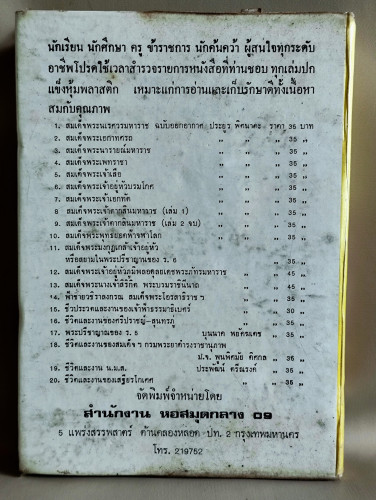 นักเรียน นักศึกษา ครู ข้าราชการ นักค้นคว้า ผู้สนใจทุกระดับ
อาชีพโปรดใช้เวลาสำรวจรายการหนังสือที่ท่านชอบ ทุกเล่มปก
แข็งหุ้มพลาสติก เหมาะแก่การอ่านและเก็บรักษาดีทั้งเนื้อหา
สมกับคุณภาพ
1. สมเด็จพระนเรศวรมหาราช ฉบับออกอากาศ ประยูร พิศนาคะ ราคา 35 บาท
2. สมเด็จพระเอกาทศรถ „ „ 35 „
3. สมเด็จพระนารายณ์มหาราช „ „ 35 „
4. สมเด็จพระเพทราชา „ „ 35 „
5. สมเด็จพระเจ้าเสือ „ „ 35 „
6. สมเด็จพระเจ้าอยู่หัวบรมโกศ „ „ 35 „
7. สมเด็จพระเจ้าเอกทัศ „ „ 35 „
8 สมเด็จพระเจ้าตากสินมหาราช (เล่ม 1) „ „ 35 „
9. สมเด็จพระเจ้าตากสินมหาราช (เล่ม 2 จบ) „ „ 35 „
10. สมเด็จพระพุทธยอดฟ้าจุฬาโลก „ „ 35 „
11. สมเด็จพระมงกุฎเกล้าเจ้าอยู่หัว
หรือสยามในพระปรีชาญาณของ ร. 6 „ „ 35 „
12. สมเด็จพระเจ้าอยู่หัวภูมิพลอดุลยเดชพระภัทรมหาราช „ 45 „
13. สมเด็จพระนางเจ้าสิริกิติ์ พระบรมราชินีนาถ „ „ 45 „
14. ฟ้าชายวชิราลงกรณ สมเด็จพระโอรสาธิราช ฯ „ „ 35 „
15. ชีวประวัติและงานของเจ้าฟ้าธรรมาธิเบศร์ „ „ 30 „
16. ชีวิตและงานของศรีปราชญ์-สุนทรภู่ „ „ 35 „
17. พระปรีชาญาณของ ร. 5 บุนนาค พยัคฆเดช „ 35 „
18. ชีวิตและงานของสมเด็จ ฯ กรมพระยาดำรงราชานุภาพ
ป.จ. พูนพิศมัย ดิศกุล „ 35 „
19. ชีวิตและงาน น.ม.ส. ประพัฒน์ ตรีณรงค์ „ 35 „
20. ชีวิตและงานของเสฐียรโกเศศ „ „ 35 „
จัดพิมพ์จำหน่ายโดย
สำนักงาน หอสมุดกลาง 09
5 แพร่งสรรพศาสตร์ ด้านคลองหลอด ปท. 2 กรุงเทพมหานคร
โทร. 219752